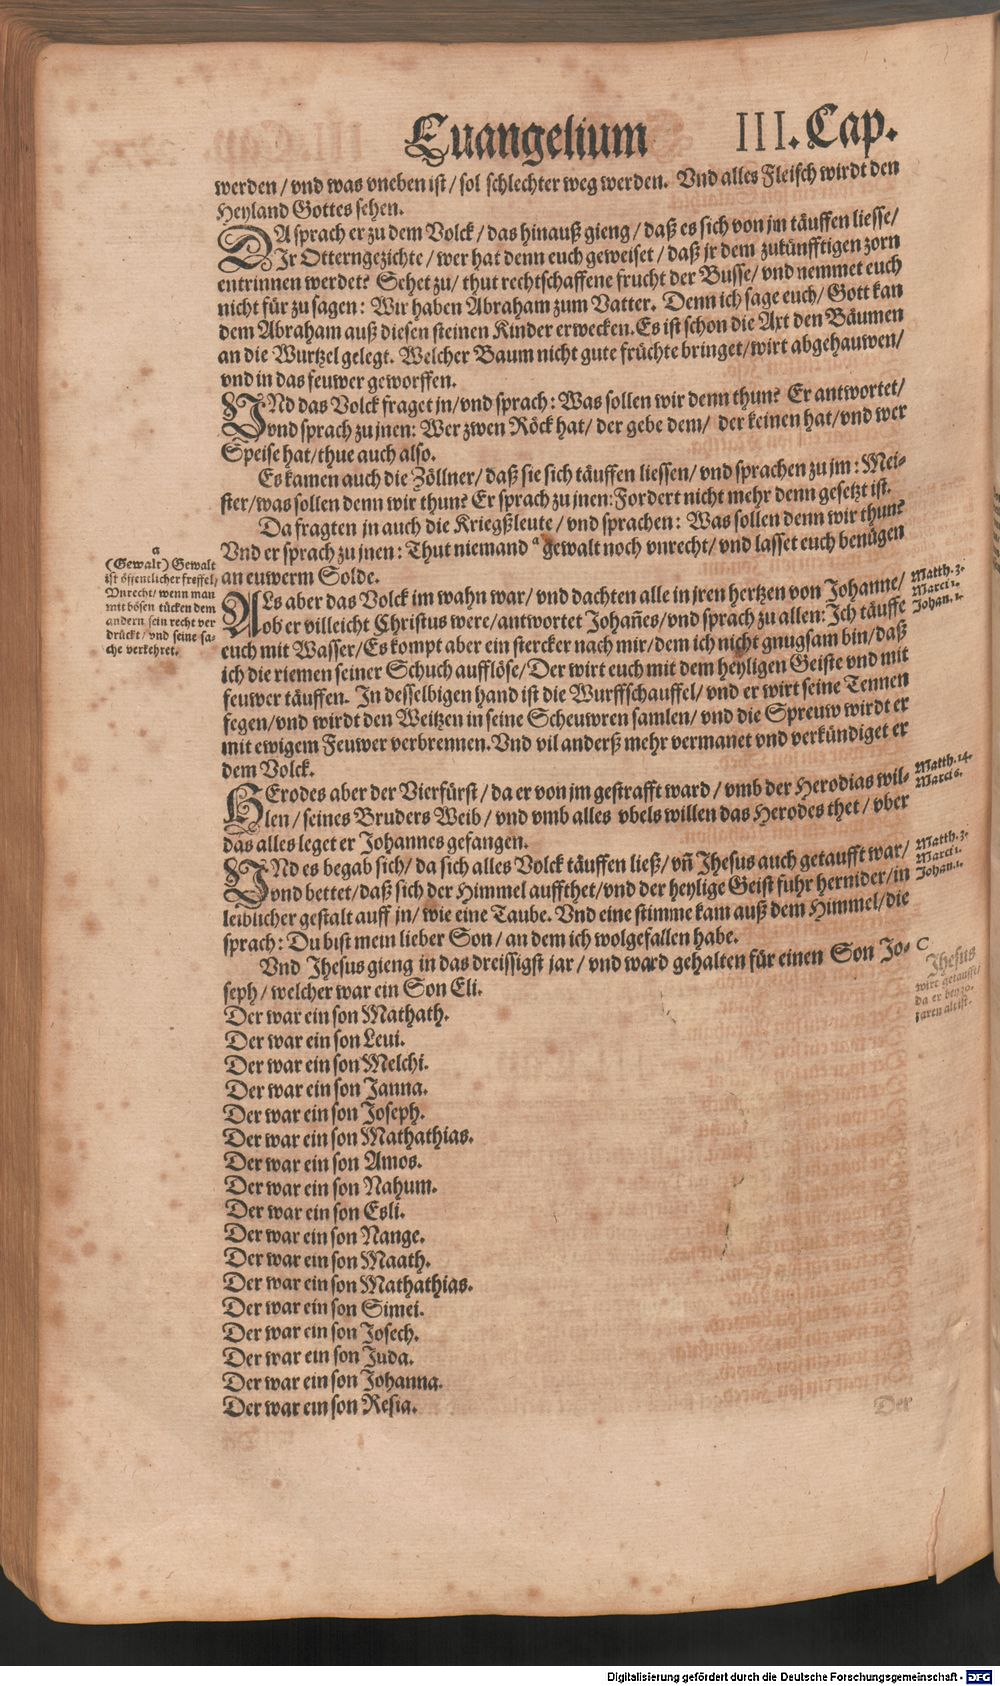 Euangelium III. Cap.
werden / vnd was vneben ist / sol schlechter weg werden. Vnd alles Fleisch wirdt den
Heyland Gottes sehen.
DA sprach er zu dem Volck / das hinauß gieng / daß es sich von jm täuffen liesse /
Ir Otterngezichte / wer hat denn euch geweiset / daß jr dem zukünfftigen zorn
entrinnen werdet? Sehet zu / thut rechtschaffene frucht der Busse / vnd nemmet euch
nicht für zu sagen: Wir haben Abraham zum Vatter. Denn ich sage euch / Gott kan
dem Abraham auß diesen steinen Kinder erwecken. Es ist schon die Axt den Bäumen
an die Wurtzel gelegt. Welcher Baum nicht gute früchte bringet / wirt abgehauwen /
vnd in das feuwer geworffen.
VNd das Volck fraget jn / vnd sprach: Was sollen wir denn thun? Er antwortet /
vnd sprach zu jnen: Wer zwen Röck hat / der gebe dem / der keinen hat / vnd wer
Speise hat / thue auch also.
Es kamen auch die Zöllner / daß sie sich täuffen liessen / vnd sprachen zu jm: Mei-
ster / was sollen denn wir thun? Er sprach zu jnen: Fordert nicht mehr denn gesetzt ist.
Da fragten jn auch die Kriegßleute / vnd sprachen: Was sollen denn wir thun?
Vnd er sprach zu jnen: Thut niemand a gewalt noch vnrecht / vnd lasset euch benügen
an euwerm Solde.
a
(Gewalt) Gewalt
ist öffentlicher freffel /
Vnrecht / wenn man
mit bösen tücken dem
andern sein recht ver
drückt / vnd seine sa-
che verkehret.
ALs aber das Volck im wahn war / vnd dachten alle in jren hertzen von Johanne /
ob er villeicht Christus were / antwortet Johan̄es / vnd sprach zu allen: Ich täuffe
euch mit Wasser / Es kompt aber ein stercker nach mir / dem ich nicht gnugsam bin / daß
ich die riemen seiner Schuch aufflöse / Der wirt euch mit dem heyligen Geiste vnd mit
feuwer täuffen. In desselbigen hand ist die Wurffschauffel / vnd er wirt seine Tennen
fegen / vnd wirdt den Weitzen in seine Scheuwren samlen / vnd die Spreuw wirdt er
mit ewigem Feuwer verbrennen. Vnd vil anderß mehr vermanet vnd verkündiget er
dem Volck.
Matth. 3.
Marci 1.
Johan. 1.
HErodes aber der Vierfürst / da er von jm gestrafft ward / vmb der Herodias wil-
len / seines Bruders Weib / vnd vmb alles vbels willen das Herodes thet / vber
das alles leget er Johannes gefangen.
Matth. 14.
Marci 6.
VNd es begab sich / da sich alles Volck täuffen ließ / vn̄ Jhesus auch getaufft war /
vnd bettet / daß sich der Himmel auffthet / vnd der heylige Geist fuhr hernider / in
leiblicher gestalt auff jn / wie eine Taube. Vnd eine stimme kam auß dem Himmel / die
sprach: Du bist mein lieber Son / an dem ich wolgefallen habe.
Matth. 3.
Marci 1.
Johan. 1.
Vnd Jhesus gieng in das dreissigst jar / vnd ward gehalten für einen Son Jo-
seph / welcher war ein Son Eli.
C
Jhesus
wirt getaufft /
da er bey 30.
jaren alt ist.
Der war ein son Mathath.
Der war ein son Leui.
Der war ein son Melchi.
Der war ein son Janna.
Der war ein son Joseph.
Der war ein son Mathathias.
Der war ein son Amos.
Der war ein son Nahum.
Der war ein son Esli.
Der war ein son Nange.
Der war ein son Maath.
Der war ein son Mathathias.
Der war ein son Simei.
Der war ein son Josech.
Der war ein son Juda.
Der war ein son Johanna.
Der war ein son Resia.
Der
Digitalisierung gefördert durch die Deutsche Forschungsgemeinschaft - DFG